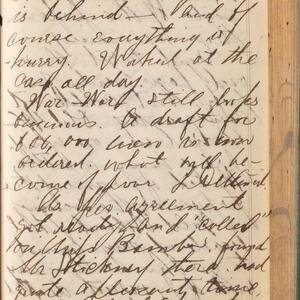 is behind — and of
course everything is
hurry. Worked at the
Case all day.
War War still looks
ominous. A draft for
600,000 men is now
ordered. what will be-
come of poor
As per agreement
got ready and "called"
found
Mr Stickney there, had
quite a pleasant time